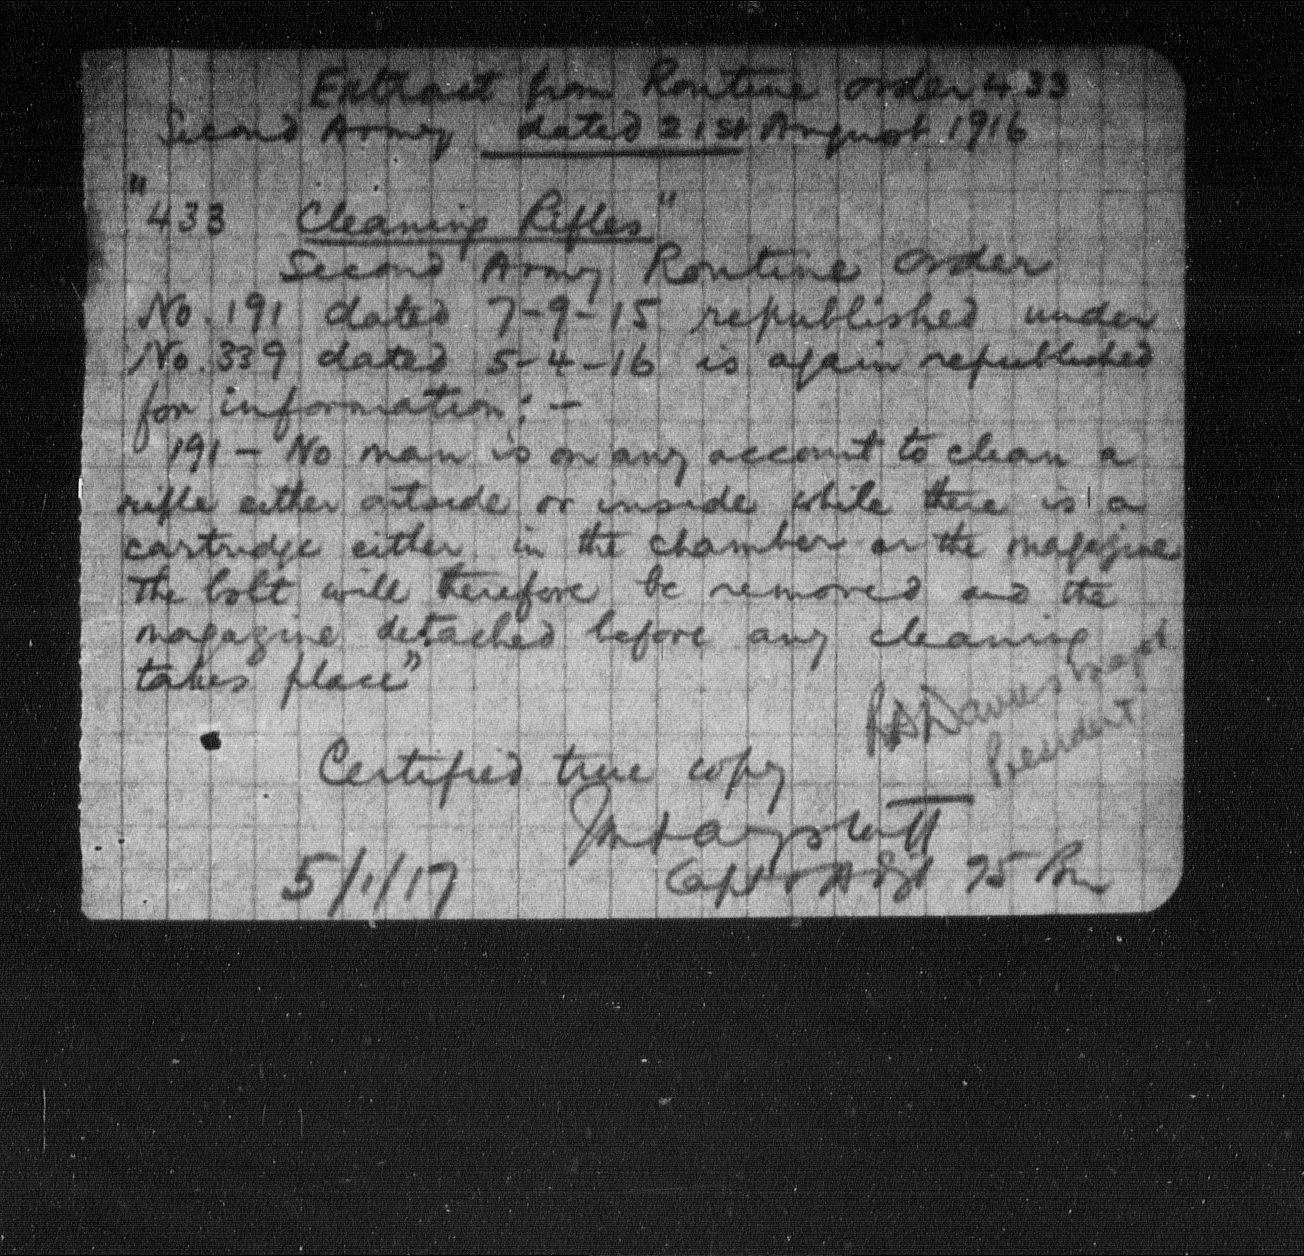 Extract from Routine order 433
Second Army dated 21st August 1916
"433 Cleaning Rifles"
Second Army Routine order
No. 191 dated 7-9-15 republished under
No. 339 dated 5-4-16 is again republished
for information: -
191 - No man is on any account to clean a
rifle either outside or inside while there is a
cartridge either in the chamber or the magazine
The bolt will therefore be removed and the
magazine detached before any cleaning
takes place"
Davies Capt
President
Certified true copy
Capt & Adjt 75 Bn
5/1/17